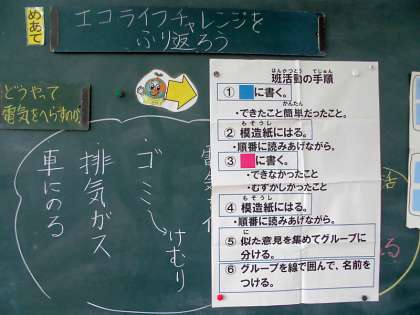 めあて
エコライフチャレンジを
ふり返ろう
どうやって
電気をへらすのか
班活動の手順
はんかつどう てじゅん
① に書く。
・できたこと簡単だったこと。
かんたん
② 模造紙にはる。
もぞうし
・順番に読みあげながら。
③ に書く。
・できなかったこと
・むずかしかったこと
④ 模造紙にはる。
もぞうし
・順番に読みあげながら。
⑤ 似た意見を集めてグループに
に
分ける。
⑥ グループを線で囲んで、名前を
つける。
・ゴミ→けむり
排気ガス
車にのる